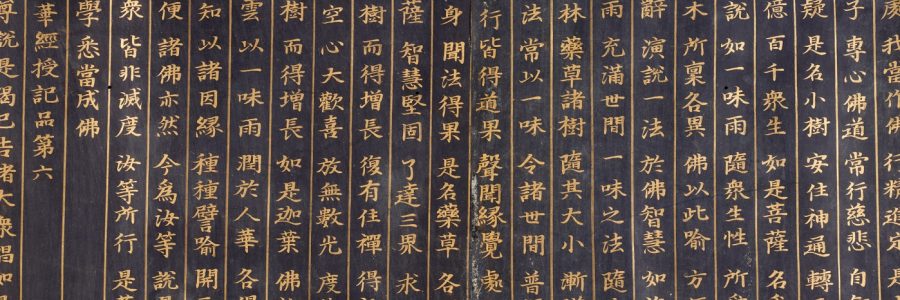 我當作佛 行精進定 是
子 專心佛道 常行慈悲 自
疑 是名小樹 安住神通 轉
億 百千眾生 如是菩薩 名
說 如一味雨 隨眾生性 所
木 所稟各異 佛以此喻 方
辭 演說一法 於佛智慧 如
雨 充滿世間 一味之法 隨
林 藥草諸樹 隨其大小 漸
法 常以一味 令諸世間 普
行 皆得道果 聲聞緣覺 處
身 聞法得果 是名藥草 各
薩 智慧堅固 了達三界 求
樹 而得增長 復有住禪 得
空 心大歡喜 放無數光 度
樹 而得增長 如是迦葉 佛
雲 以一味雨 潤於人華 各
知 以諸因緣 種種譬喻 開
便 諸佛亦然 今為汝等 說
眾 皆非滅度 汝等所行 是
學 悉當成佛
華經授記品第六
尊說是偈已告諸大眾唱如